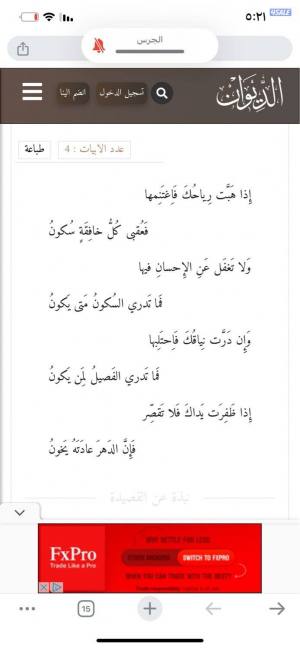 ٥:٢١
4SALE
الجرس
الديوان
تسجيل الدخول
انضم الينا
عدد الابيات : 4
طباعة
إِذا هَبَّت رِياحُكَ فَاِغتَنِمها
فَعُقبى كُلُّ خافِقَةٍ سُكونُ
وَلا تَغفَل عَنِ الإِحسانِ فيها
فَما تَدري السُكونُ مَتى يَكونُ
وَإِن دَرَّت نِياقُكَ فَاِحتَلِبها
فَما تَدري الفَصيلُ لِمَن يَكونُ
إِذا ظَفِرَت يَداكَ فَلا تَقصِّر
فَإِنَّ الدَهرَ عادَتُهُ يَخونُ
نبذة عن القصيدة
FxPro
Trade Like a Pro
WHY SETTLE FOR LESS
SWITCH TO FXPRO
WHEN YOU CAN TRADE WITH THE BEST?
15